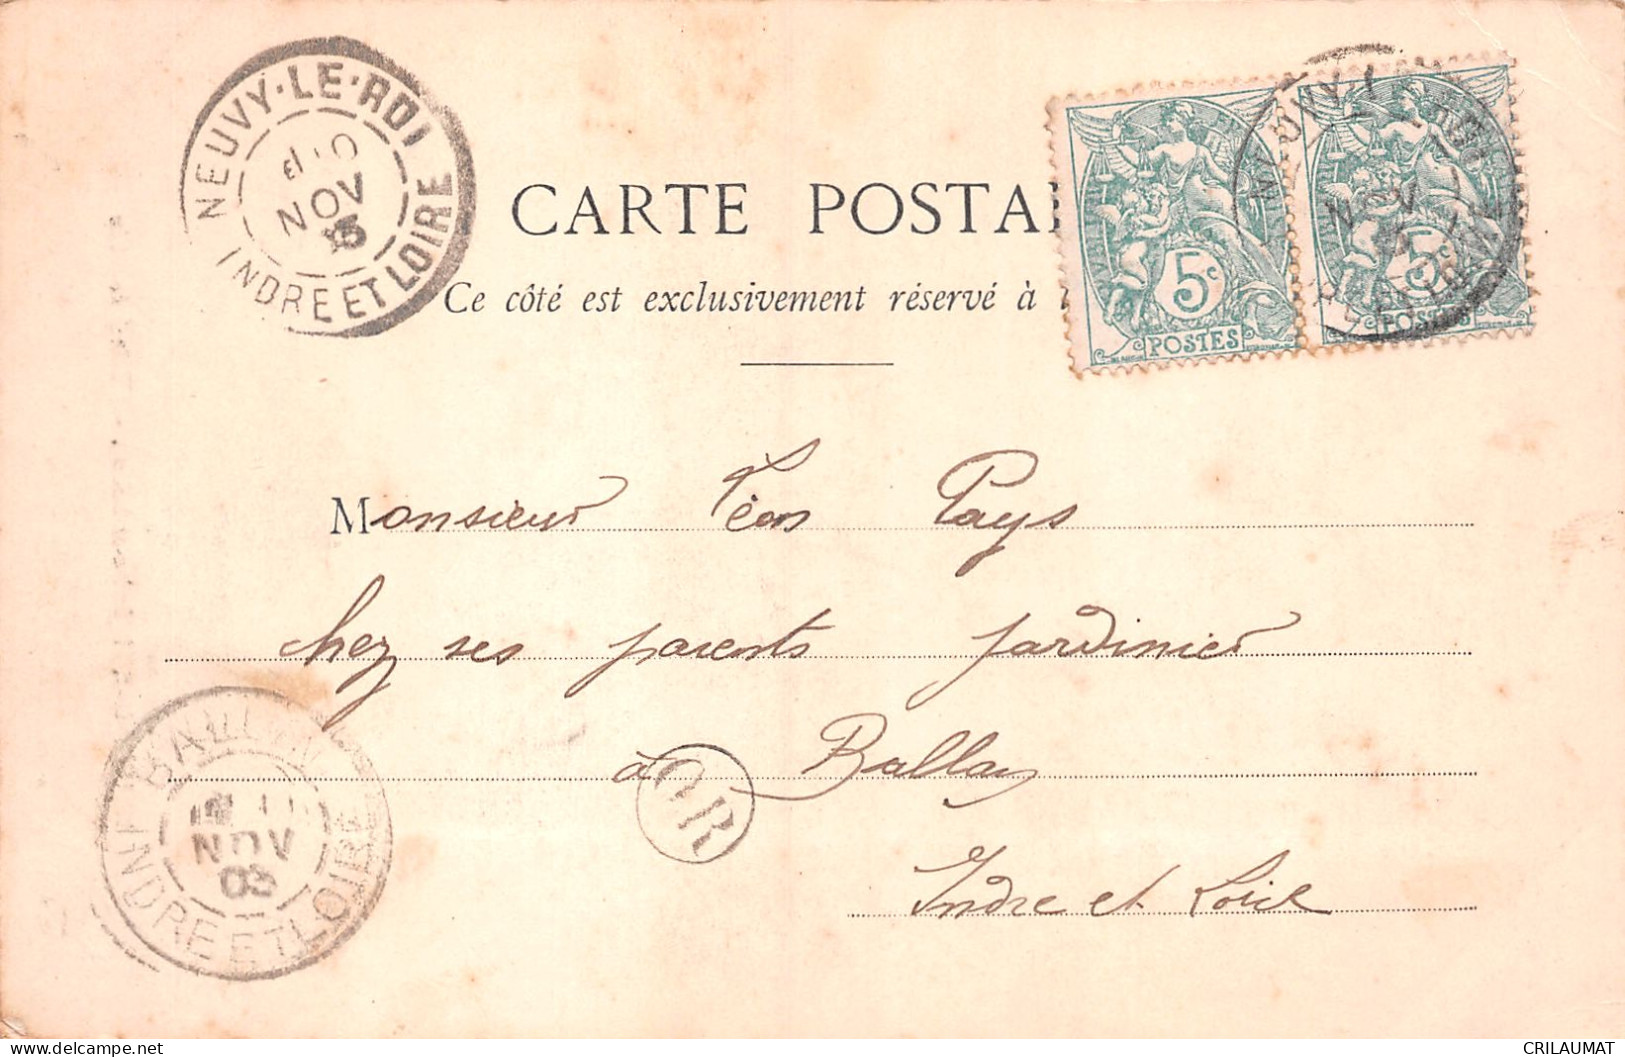 NEUVY-LE-ROI
NOV
INDRE ET LOIRE
CARTE POSTA
Ce côté est exclusivement réservé à
5c
POSTES
5c
POSTES
Monsieur Léon Pays
chez ses parents jardinier
à Ballan
OR
Indre et Loire
BALLAN
NOV
03
INDRE ET LOIRE
CRILAUMAT